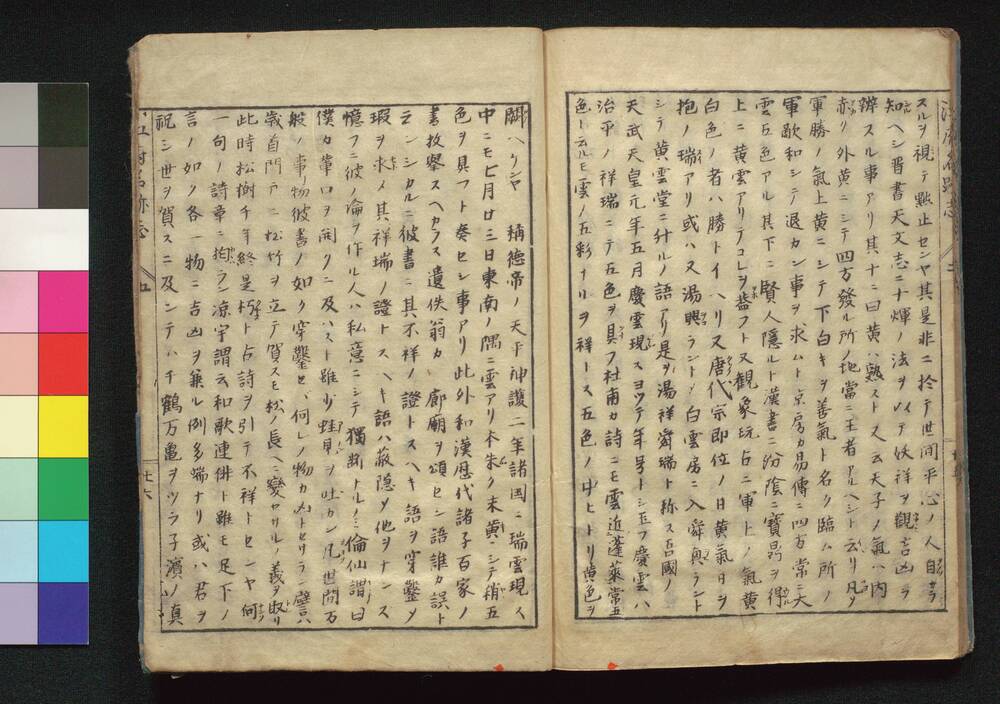 スルヲ視テ黙止センヤ其是非ニ於テ世間平心ノ人自カラ
知ヘシ晋書天文志ニ十煇ノ法ヲ以テ妖祥ヲ觀吉凶ヲ
辨スル事アリ其十ニ曰黄ハ熟ト又云天子ノ氣ハ内
赤ク外黄ニシテ四方發ル所ノ地當ニ王者アルヘシト云リ凡
軍勝ノ氣上黄ニシテ下白キヲ善氣ト名ク臨ム所ノ
軍歐和シテ退カン事ヲ求ムト京房カ易傳ニ四方常ニ大
雲五色アル其下ニ賢人隠ルト漢書ニ汾陰ニ寶鼎ヲ得
上ニ黄雲アリテコレヲ蓋フト又觀象玩占ニ軍上ノ氣黄
白色ノ者ハ勝トイヘリ又唐代宗即位ノ日黄氣日ヲ
抱ノ瑞アリ或ハ又湯興ラントメ白雲房ニ入舜興ラント
シテ黄雲堂ニ升ルノ語アリ是ヲ湯祥舜瑞ト称ス吾國ノ
天武天皇元年五月慶雲現スヨツテ年号トシ玉フ慶雲ハ
治平ノ祥瑞ニテ五色ヲ具フ杜甫カ詩ニモ雲近蓬萊常五
色ト云ルモ雲ノ五彩ナリヲ祥トス五色ノ中ヒトリ黄色ヲ
闕ヘケンヤ 稱德帝ノ天平神護二年諸国ニ瑞雲現ス
中ニモ七月廿三日東南ノ隅ニ雲アリ本朱ク末黄ニシテ稍五
色ヲ具フト奏セシ事アリ此外和漢歴代諸子百家ノ
書枚擧スヘカラス遺佚翁カ 廊廟ヲ頌セシ語誰カ誤ト
センシカルニ彼書ニ其不祥ノ證トスヘキ語ヲ穿鑿メ
瑕ヲ求メ其祥瑞ノ證トスヘキ語ハ蔽隠メ他ヲナンス
憶フニ彼ノ倫ヲ作ル人ハ私意ニシテ獨断トルノミ倫仙謂曰
僕カ輩口ヲ開クニ及ハスト雖少蛙見ヲ吐カン凡世間万
般ノ事物彼書ノ如ク穿鑿セハ何レノ物カ凶トセサラン譬ハ
歳首門戸ニ松竹ヲ立テ賀スモ松ノ長ヘニ變セサルノ義ヲ取リ
此時松樹千年終是朽ト占詩ヲ引テ不祥トセンヤ何
一句ノ詩章ニ拘ラン凉宇謂云和歌連俳ト雖モ足下ノ
言ノ如ク各一物ニ吉凶ヲ兼ル例多端ナリ或ハ君ヲ
祝シ世ヲ賀スニ及ンテハ千鶴万亀ヲツラ子濱ノ真
廿六